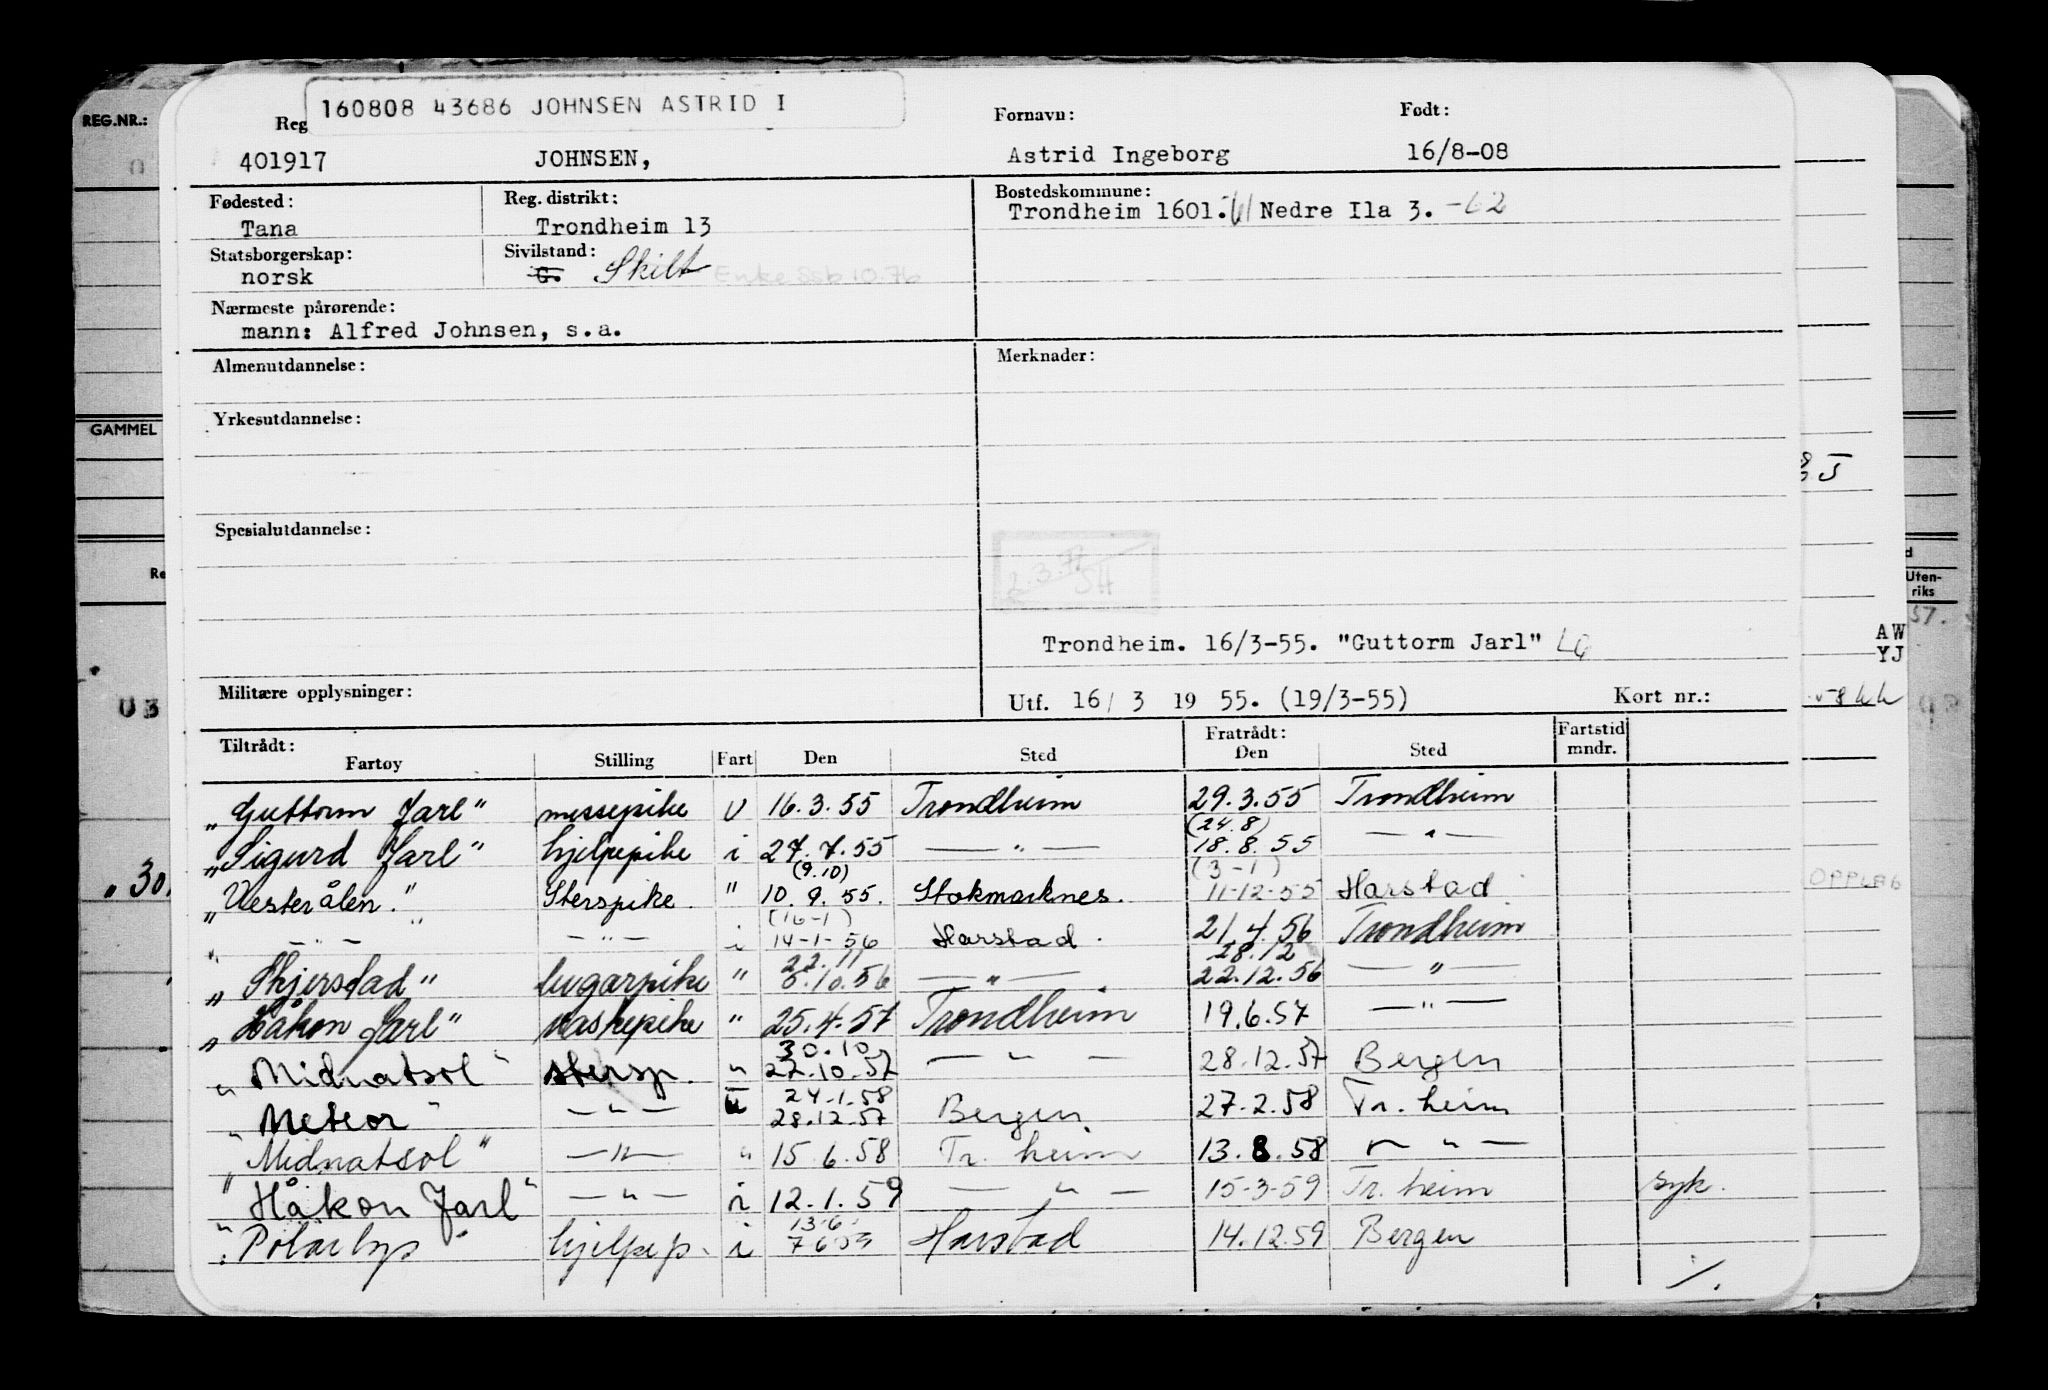 REG.NR.:
160808 43686 JOHNSEN ASTRID I
Reg
Fornavn:
Født:
401917 JOHNSEN, Astrid Ingeborg 16/8-08
Fødested: Reg. distrikt: Bostedskommune:
Tana Trondheim 13 Trondheim 1601. Nedre Ila 3. -62
Statsborgerskap: Sivilstand:
norsk G. Skilt Enke Ssb 10.76
Nærmeste pårørende:
mann: Alfred Johnsen, s.a.
Almenutdannelse: Merknader:
Yrkesutdannelse:
GAMMEL
Spesialutdannelse:
2.3.77 SH
Trondheim. 16/3-55. "Guttorm Jarl"
Militære opplysninger: Utf. 16/ 3 19 55. (19/3-55) Kort nr.:
Tiltrådt: Fratrådt: Fartstid mndr.
Fartøy Stilling Fart Den Sted Den Sted
„Guttorm Jarl" messepike U 16.3.55 Trondheim 29.3.55 Trondheim
(24.8)
„Sigurd Jarl" hjelpepike i 27.7.55 — " — 18.8.55 — " —
(9.10) (3-1)
„Vesterålen." Sterspike. " 10.9.55. Stokmarknes. 11-12-55 Harstad
(16-1)
„ — " — " — " — i 14-1-56 Harstad. 21.4.56 Trondheim
22.11 28.12
„Skjerstad" lugarpike " 8.10.56 — " — 22.12.56 — " —
„Håkon Jarl" vaskepike " 25.4.57 Trondheim 19.6.57 — " —
30.10
„Midnatsol" stersp. " 22.10.57 — " — 28.12.57 Bergen
24.1.58
„Meteor" — " — 28.12.57 Bergen 27.2.58 Tr. heim
„Midnatsol" — " — " 15.6.58 Tr. heim 13.8.58 — " —
„Håkon Jarl" — " — i 12.1.59 — " — 15-3-59 Tr. heim syk.
13.6.
„Polarlys" hjelpep. i 7659 Harstad 14.12.59 Bergen
./.
Uten-
riks
57.
AW
YJ
OPPLAG
„30.